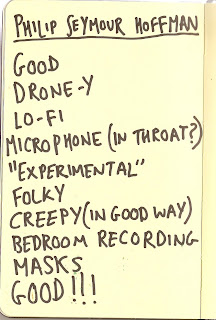 PHILIP SEYMOUR HOFFMAN
GOOD
DRONE-Y
LO-FI
MICROPHONE (IN THROAT?)
"EXPERIMENTAL"
FOLKY
CREEPY (IN GOOD WAY)
BEDROOM RECORDING
MASKS
GOOD!!!